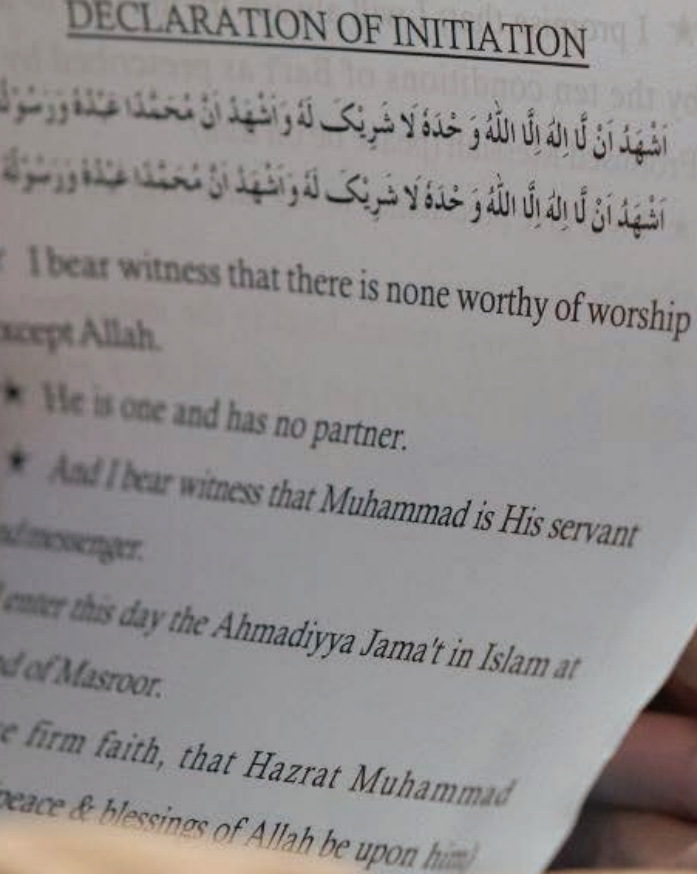 DECLARATION OF INITIATION
اَشْهَدُ اَنْ لَّا اِلٰهَ اِلَّا اللّٰهُ وَ حْدَهٗ لَا شَرِيْكَ لَهٗ وَاَشْهَدُ اَنَّ مُحَمَّدًا عَبْدُهٗ وَرَسُوْلُهٗ
اَشْهَدُ اَنْ لَّا اِلٰهَ اِلَّا اللّٰهُ وَ حْدَهٗ لَا شَرِيْكَ لَهٗ وَاَشْهَدُ اَنَّ مُحَمَّدًا عَبْدُهٗ وَرَسُوْلُهٗ
I bear witness that there is none worthy of worship
xcept Allah.
★ He is one and has no partner.
★ And I bear witness that Muhammad is His servant
nd messenger.
I enter this day the Ahmadiyya Jama't in Islam at
nd of Masroor.
e firm faith, that Hazrat Muhammad
peace & blessings of Allah be upon him)